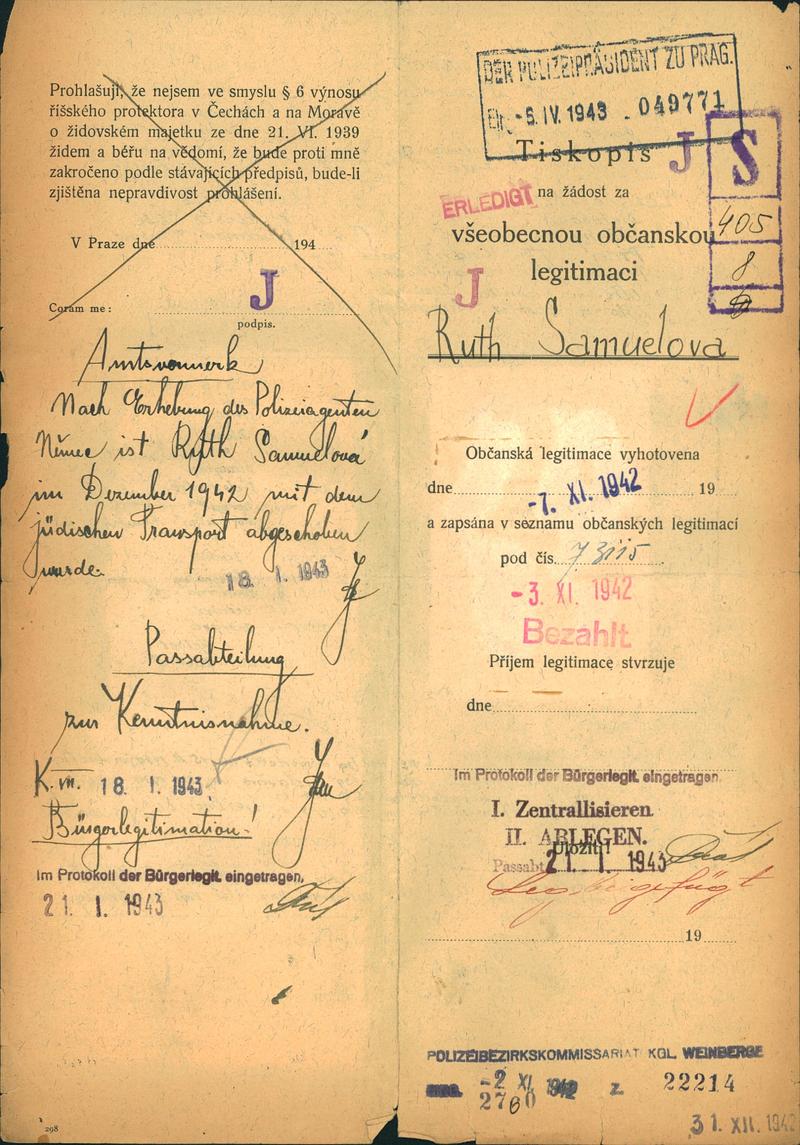 Prohlašuji, že nejsem ve smyslu § 6 výnosu
říšského protektora v Čechách a na Moravě
o židovském majetku ze dne 21. VI. 1939
židem a béřu na vědomí, že bude proti mně
zakročeno podle stávajících předpisů, bude-li
zjištěna nepravdivost prohlášení.
V Praze dne 194
J
Coram me:
podpis.
Amtsvermerk
Nach Erhebung des Polizeiagenten
Němec ist Ruth Samuelová
im Dezember 1942 mit dem
jüdischen Transport abgeschoben
wurde.
18. 1. 1943
Passabteilung
zur Kenntnisnahme.
K. VII. 18. 1. 1943
Bürgerlegitimation!
Im Protokoll der Bürgerlegit. eingetragen.
21. 1. 1943
298
DER POLIZEIPRÄSIDENT ZU PRAG.
-5. IV. 1943 049771
Tiskopis J
S
ERLEDIGT na žádost za
405
všeobecnou občanskou
8
legitimaci
J
Ruth Samuelova
Občanská legitimace vyhotovena
dne -7. XI. 1942 19
a zapsána v seznamu občanských legitimací
pod čís. 73115
-3. XI. 1942
Bezahlt
Příjem legitimace stvrzuje
dne
Im Protokoll der Bürgerlegit. eingetragen.
I. Zentrallisieren
II. ABLEGEN.
Uložiti!
Passabt 21. 1. 1943
Leg. beigefügt
19
POLIZEIBEZIRKSKOMMISSARIAT KGL. WEINBERGE
-2 XI. 1942 z. 22214
2760
31. XII. 1942